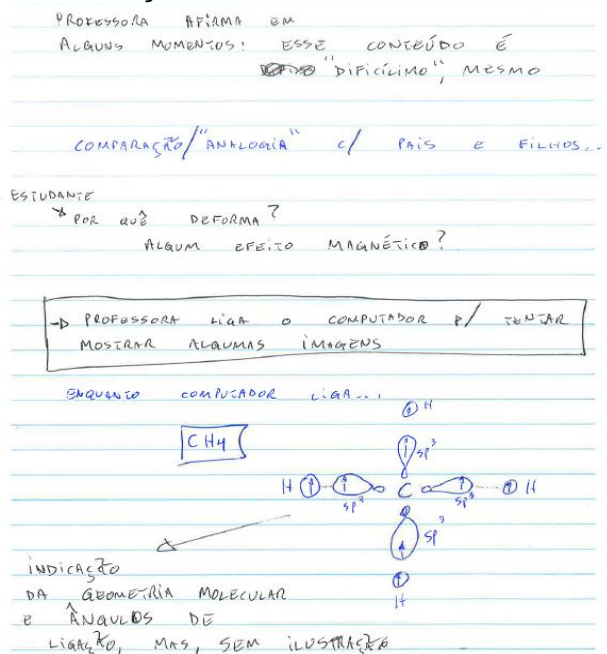 PROFESSORA AFIRMA EM
ALGUNS MOMENTOS: ESSE CONTEÚDO É
"DIFICÍLIMO", MESMO
COMPARAÇÃO/"ANALOGIA" C/ PAIS E FILHOS...
ESTUDANTE
POR QUÊ DEFORMA?
ALGUM EFEITO MAGNÉTICO?
→ PROFESSORA LIGA O COMPUTADOR P/ TENTAR
MOSTRAR ALGUMAS IMAGENS
ENQUANTO COMPUTADOR LIGA...
H
CH4
sp³
H C H
sp³ sp³
sp³
H
INDICAÇÃO
DA GEOMETRIA MOLECULAR
E ÂNGULOS DE
LIGAÇÃO, MAS, SEM ILUSTRAÇÃO